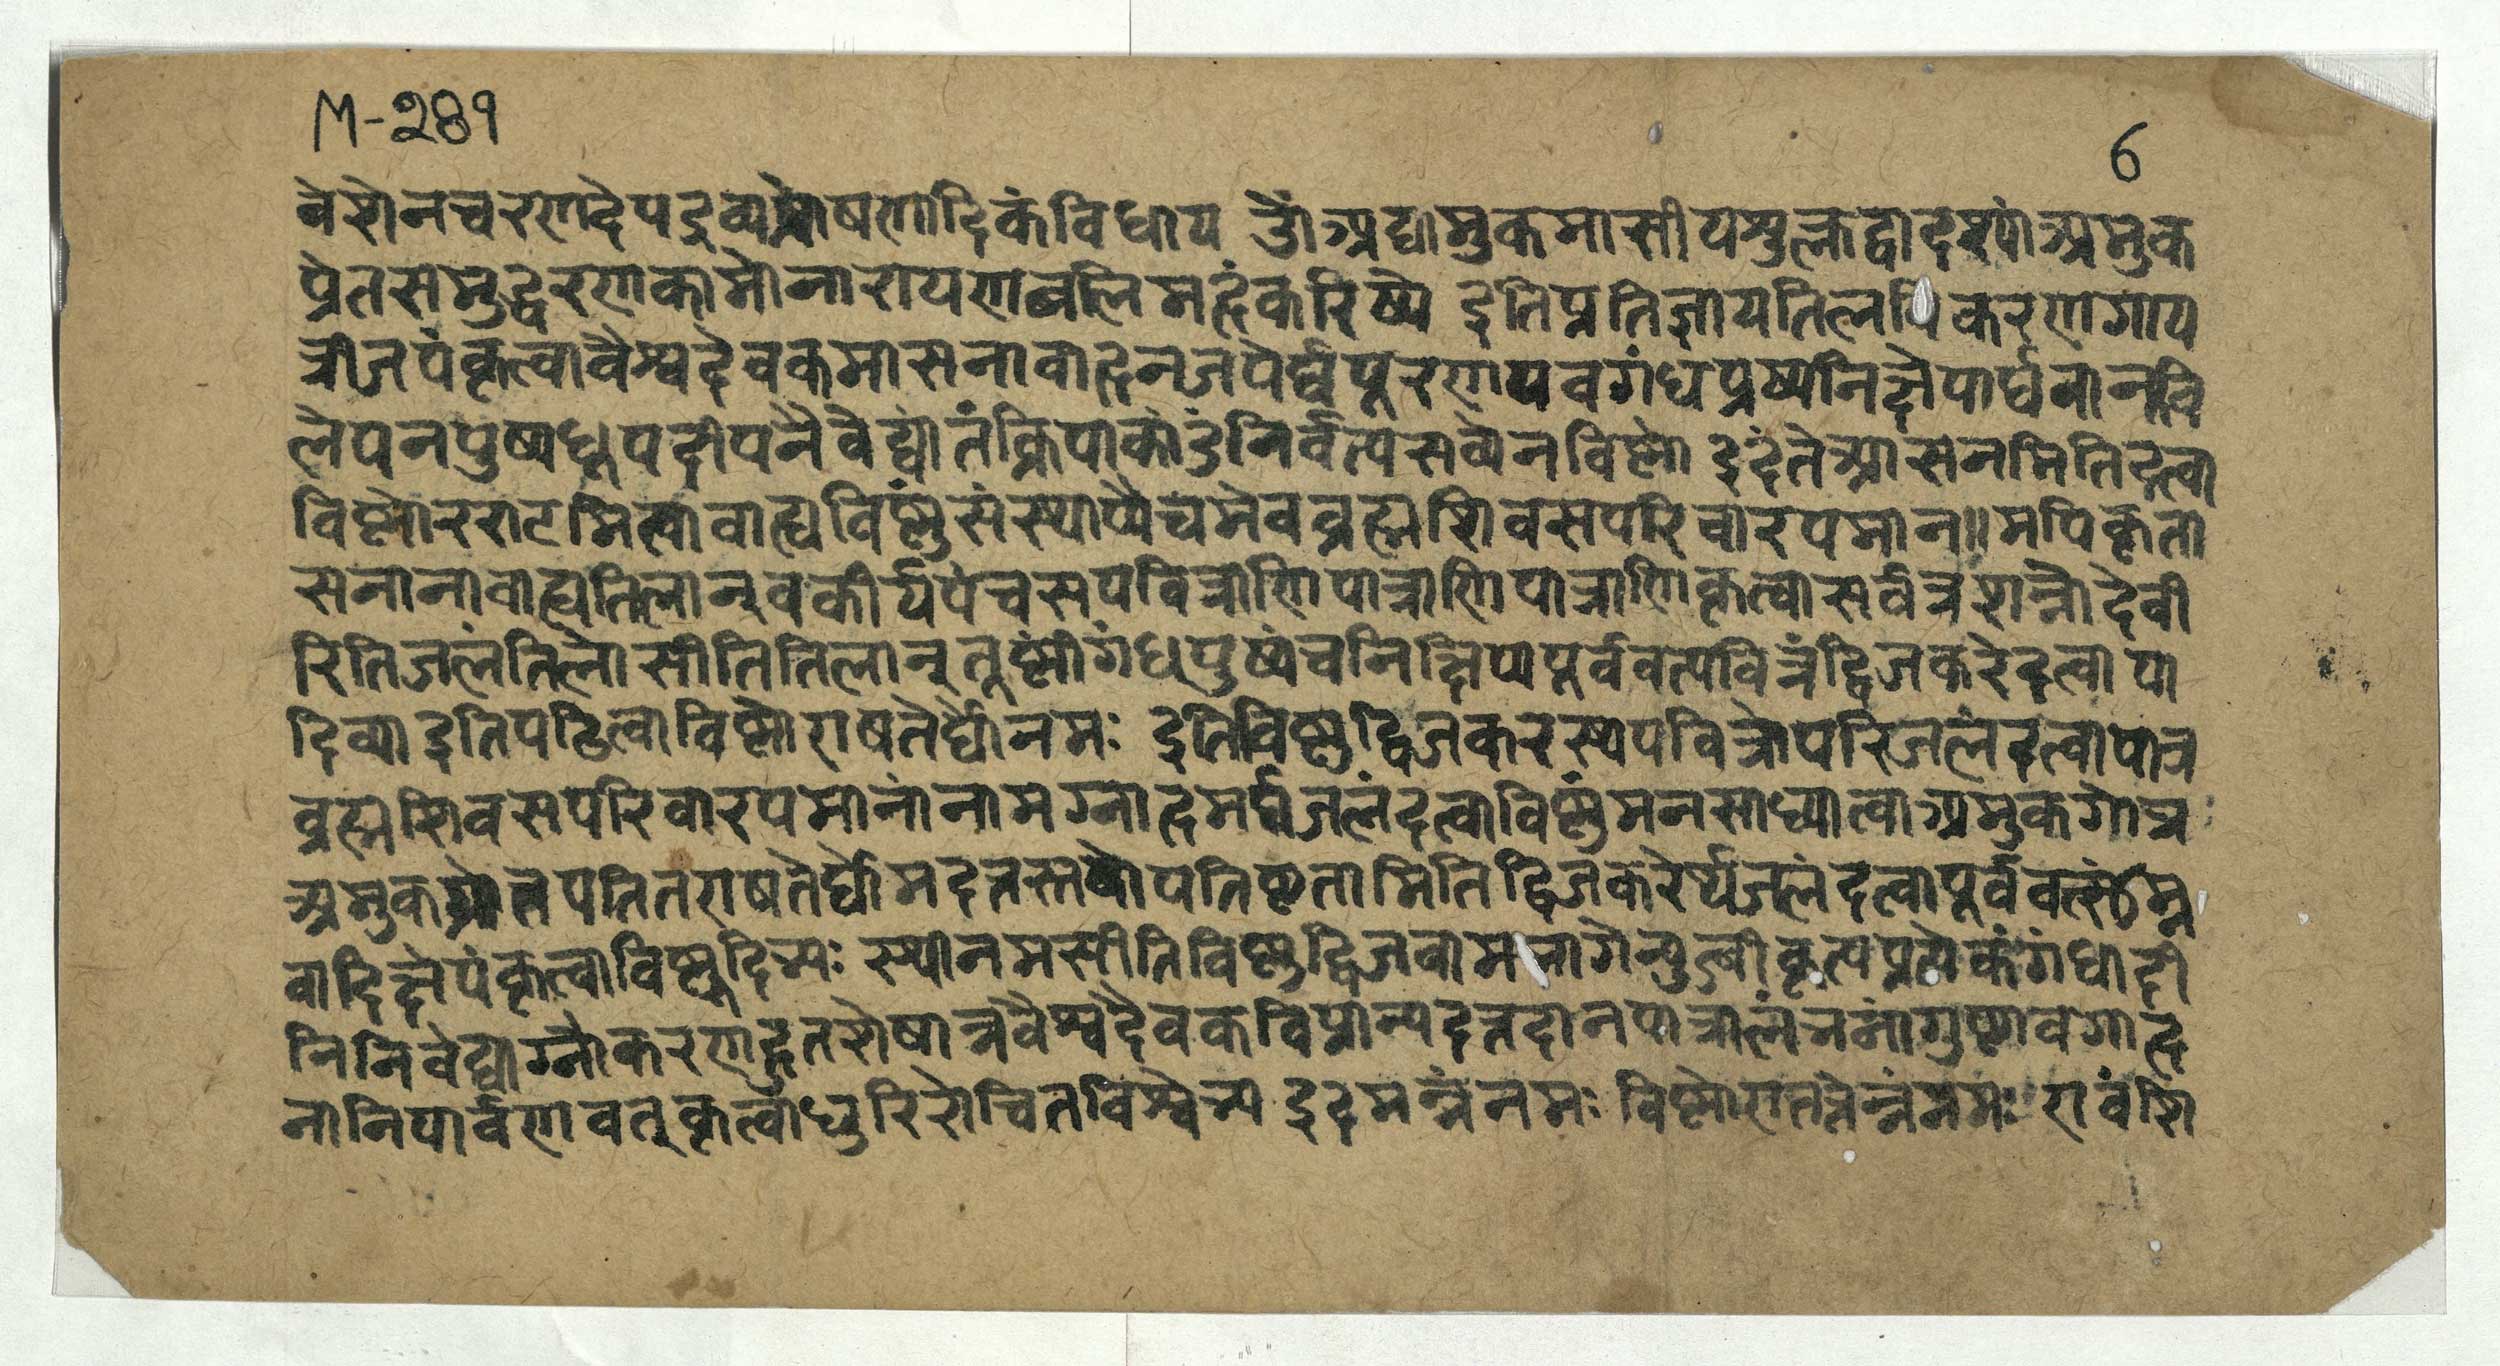 M-281
6
वेशेनचरणदेपद्रव्यप्रोषणादिकंविधाय ॐअद्यामुकमासीयशुल्कद्वादश्यांअमुक
प्रेतसमुद्धरणकामोनारायणबलिमहंकरिष्ये इतिप्रतिज्ञायतिलविकरणगाय
त्रीजपंकृत्वावैश्वदेवकमासनावाहनजपेर्घ्यपूरणयवगंधपुष्पनिक्षेपार्घदानवि
लेपनपुष्पधूपदीपनैवेद्यांतंक्रियाकांडंनिर्वर्त्यसव्येनविष्णो इदंतेआसनमितिदत्वा
विष्णोरराटमित्यावाह्यविष्णुंसंस्थाप्यैवमेवब्रह्मशिवसपरिवारयमान्॥मपिकृता
सनानावाह्यतिलान्वकीर्यपंचसपवित्राणिपात्राणिपात्राणिकृत्वासर्वत्रशन्नोदेवी
रितिजलंतिलोसीतितिलान्तूष्णींगंधपुष्पंचनिक्षिप्यपूर्ववत्पवित्रंद्विजकरेदत्वाया
दिव्याइतिपठित्वाविष्णोएषतेर्घोनमः इतिविष्णुद्विजकरस्थपवित्रोपरिजलंदत्वापात्र
ब्रह्मशिवसपरिवारयमानांनामग्नाहमर्घजलंदत्वाविष्णुंमनसाध्यात्वाअमुकगोत्र
अमुकप्रेतपतितएषतेर्घोमदत्तस्तवोपतिष्ठतामितिद्विजकरेर्घ्यजलंदत्वापूर्ववत्
वादिक्षेपंकृत्वाविष्णुदिभ्यः स्थानमसीतिविष्णुद्विजवामभागेन्युब्जीकृत्यप्रत्येकंगंधादी
निनिवेद्याग्नौकरणहुतशेषान्नवैश्वदैवकविप्रान्यदन्नदानपात्रालंभनांगुष्ठावगाह
नानिपार्वणवत्कृत्वाधुरिरोचितविश्वेभ्य इदमन्नंनमः विष्णोएतत्तेन्नंनमः एवंशि